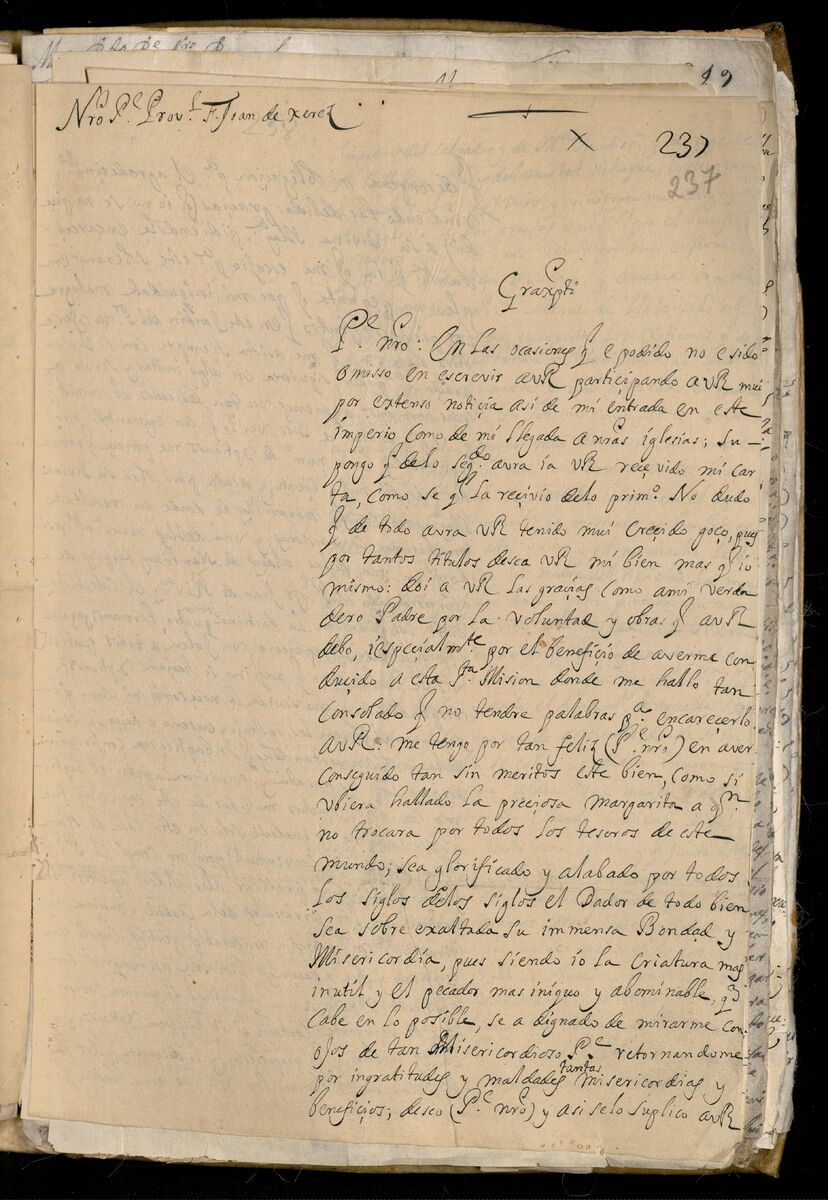 19
Nrō Pe Provl F. Joan de xerez
237
237
Graxpti
Pe. nrō: En las ocasiones q̄ e podido no e sido
omisso en escrevir avR participando avR mui
por extenso notiçia asi de mi entrada en este
imperio como de mi llegada a nrās iglesias; Su-
pongo q̄ delo segdo. avra ia vR reçevido mi car
ta, como se q̄ la reçivio delo primo. No dudo
q̄ de todo avra vR tenido mui creçido goço, pues
por tantos titulos desea vR mi bien mas q̄ io
mismo: doi a vR las graçias como ami verda
dero Padre por la voluntad y obras q̄ avR
debo, iespeçialmte. por el benefiçio de averme con
duçido a esta Sta Mision donde me hallo tan
consolado q̄ no tendre palabras pa. encareçerlo
avR: me tengo por tan feliz (Pe nrō) en aver
conseguido tan sin meritos este bien, como si
vbiera hallado la preçiosa margarita a qn.
no trocara por todos los tesoros de este
mundo; sea glorificado y alabado por todos
los siglos delos siglos el Dador de todo bien
sea sobre exaltada su immensa Bondad y
Misericordia, pues siendo io la criatura mas
inutil y el pecador mas iniquo y abominable, q̄
cabe en lo posible, se a dignado de mirarme con
ojos de tan Misericordioso Pe. retornandome
por ingratitudes y maldades tantas misericordias y
benefiçios; deseo (Pe nrō) y asi selo suplico avR